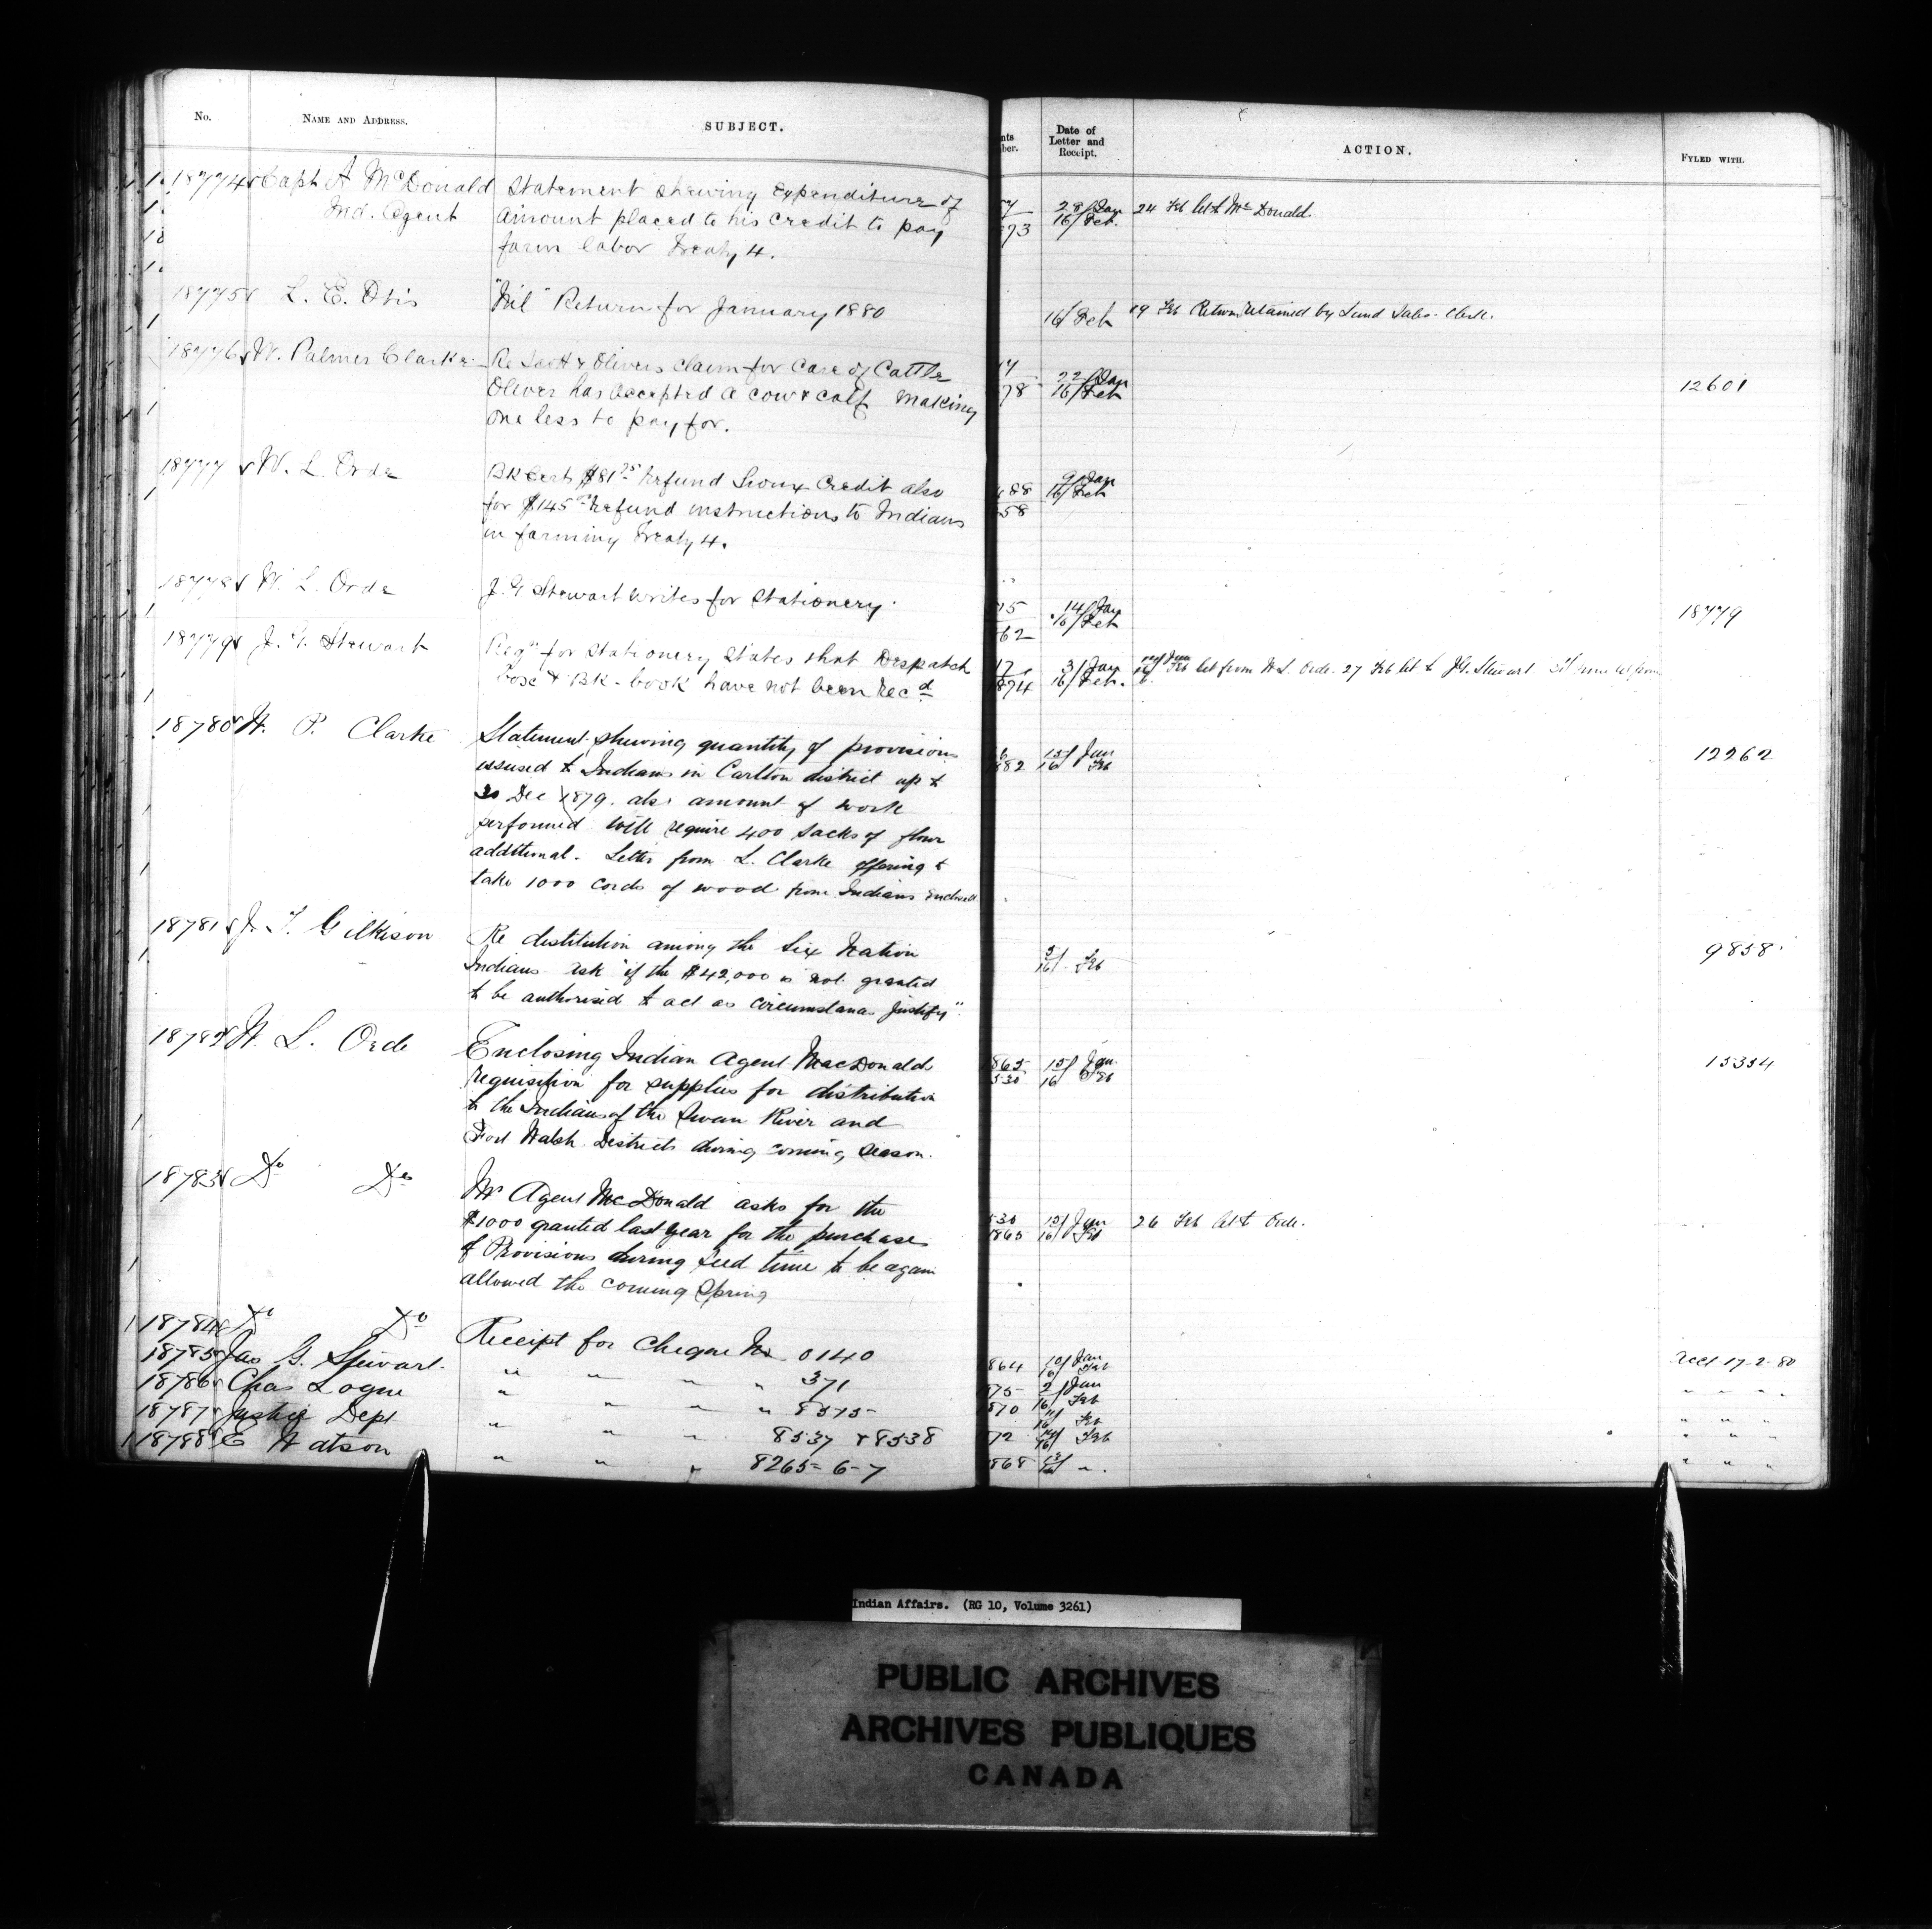 No.
NAME AND ADDRESS.
SUBJECT.
18774 Capt A McDonald
Ind. Agent
Statement shewing Expenditure of
amount placed to his credit to pay
farm labor Treaty 4.
18775 L. E. Otis
"Nil" Return for January 1880
18776 W. Palmer Clarke
Re Scott & Olivers claim for care of Cattle
Oliver has accepted a cow & calf making
one less to pay for.
18777 W. L. Orde
BK Cert $81 25 refund Sioux Credit also
for $145 refund instructions to Indians
in farming Treaty 4.
18778 W. L. Orde
J. G Stewart writes for Stationery.
18779 J. G. Stewart
Reqn for Stationery States that Despatch
box & BK-book have not been recd
18780 W. P. Clarke
Statement shewing quantity of provisions
issued to Indians in Carlton district up to
30 Dec 1879. also amount of work
performed will require 400 sacks of flour
additional. Letter from L. Clarke offering to
take 1000 cords of wood from Indians enclosed
18781 J. T. Gilkison
Re destitution among the Six Nation
Indians ask "if the $42,000 is not granted
to be authorised to act as circumstances justify".
18782 W. L. Orde
Enclosing Indian Agent MacDonalds
requisition for supplies for distribution
to the Indians of the Swan River and
Fort Walsh Districts during coming season.
18783 Do Do
Mr Agent McDonald asks for the
$1000 granted last year for the purchase
of Provisions during seed time to be again
allowed the coming Spring
18784 Do Do
Receipt for Cheque No 0140
18785 Jas G. Stewart.
" " " " 371
18786 Chas Logue
" " " " 8575
18787 Justice Dept
" " " 8537 & 8538
18788 E Watson
" " " 8265-6-7
nts
ber.
Date of
Letter and
Receipt.
ACTION.
FYLED WITH.
73
28/Jan
16/Feb.
24 Feb let to Mr Donald.
16/Feb
19 Feb Return retained by Land Sales Clerk.
78
22/Jan
16/Feb
12601
488
58
9/Jan
16/Feb
15
62
14/Jan
16/Feb
18779
17
1874
31/Jan
16/Feb.
Feb let from W.L. Orde. 27 Feb let to J.G. Stewart
6
882
15/Jan
16 Feb
12262
5/
16/ Feb
9858
865
530
15/Jan
16 Feb
15354
530
1865
15/Jan
16/Feb
26 Feb let to Orde.
864
10/Jan
16/Feb
17-2-80
75
2/Jan
16/Feb
" " " "
870
16/Feb
" " "
72
16/Feb
" " "
868
" " "
Indian Affairs. (RG 10, Volume 3261)
PUBLIC ARCHIVES
ARCHIVES PUBLIQUES
CANADA